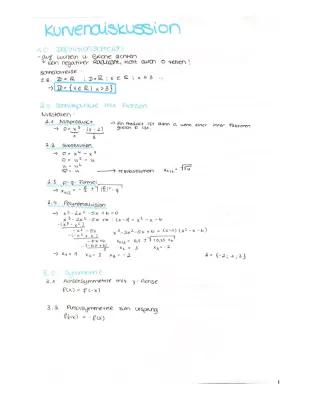 Kurvendiskussion
1.0 Definitionsbereich
- auf Wurzeln u. Brüche achten
kein negativer Radikant, nicht durch 0 teilen!
Schreibweise
z.B. D = R | D = R | x ∈ R | x > 3 ...
→ D = {x ∈ R | x > 3}
2.0 Schnittpunkte mit Achsen
Nullstellen:
2.1 Nullprodukt → Ein Produkt ist dann 0, wenn einer ihrer Faktoren gleich 0 ist.
→ 0 = x³ (x-2)
2.2 Substitution
→ 0 = x⁴ - x²
0 = u² - u
→ resubstitution
2.3 p-q-Formel
2.4 Polynomdivision
→ x³ - 2x² - 5x + 6 = 0
x³ - 2x² - 5x + 6 : (x-1) = x² - x - 6
x³ - 2x² - 5x + 6 = (x-1)(x² - x - 6)
→ x₁ = 1 x₂ = 3 x₃ = -2
3.0 Symmetrie
3.1 Achsensymmetrie mit y-Achse
f(x) = f(-x)
3.2 Punktsymmetrie zum Ursprung
f(-x) = -f(x)
1